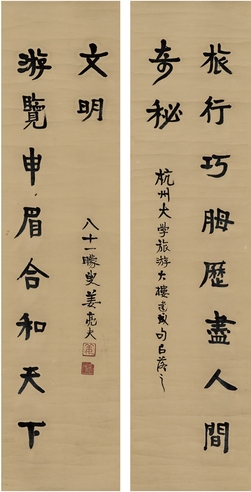 旅行巧䀲歷盡人間
奇秘
杭州大學旅游大樓建成句以落之
游覽申眉合和天下
文明
八十一矇叟姜亮夫